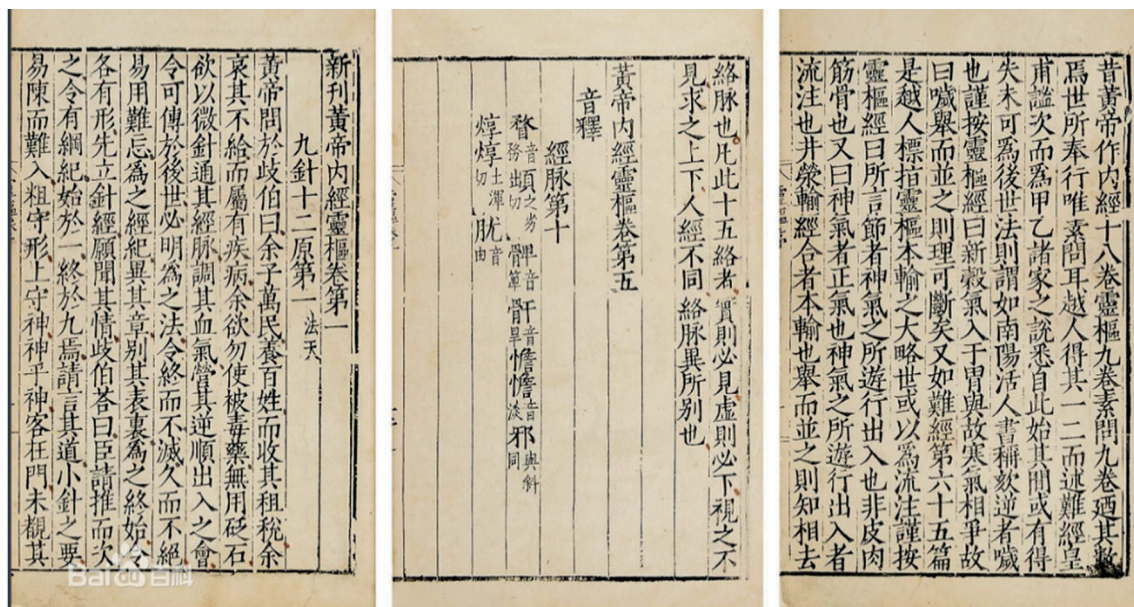 昔黃帝作內經十八卷靈樞九卷素問九卷廼其數
焉世所奉行唯素問耳越人得其一二而述難經皇
甫謐次而為甲乙諸家之說悉自此始其間或有得
失未可為後世法則謂如南陽活人書稱欬逆者噦
也謹按靈樞經曰新穀氣入于胃與故寒氣相爭故
曰噦舉而並之則理可斷矣又如難經第六十五篇
是越人標指靈樞本輸之大略世或以為流注謹按
靈樞經曰所言節者神氣之所遊行出入也非皮肉
筋骨也又曰神氣者正氣也神氣之所遊行出入者
流注也井滎輸經合者本輸也舉而並之則知相去
絡脉也凡此十五絡者實則必見虛則必下視之不
見求之上下人經不同絡脉異所別也
黃帝內經靈樞卷第五
音釋
經脉第十
瞀音務 之劣出切 音箄 骭音旱 憺憺音淡 邪音與斜同
焞焞土渾切 肬音由
新刊黃帝內經靈樞卷第一
九針十二原第一 法天
黃帝問於歧伯曰余子萬民養百姓而收其租稅余
哀其不給而屬有疾病余欲勿使被毒藥無用砭石
欲以微針通其經脉調其血氣營其逆順出入之會
令可傳於後世必明為之法令終而不滅久而不絕
易用難忘為之經紀異其章別其表裏為之終始令
各有形先立針經願聞其情歧伯荅曰臣請推而次
之令有綱紀始於一終於九焉請言其道小針之要
易陳而難入粗守形上守神神乎神客在門未覩其
Bai百科